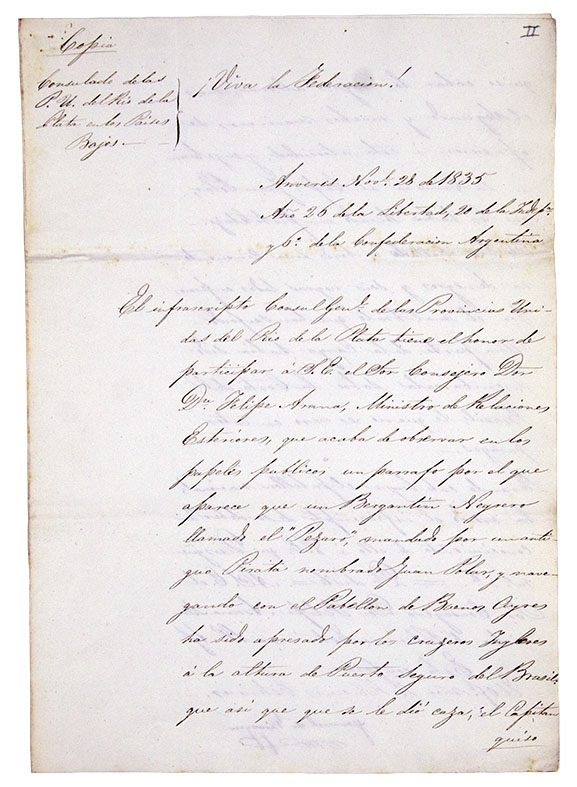 II
Copia
Consulado de las
P. U. del Rio de la
Plata en los Paises
Bajos
¡Viva la Federacion!
Anveres Nov.e 28 de 1835
Año 26 de la Libertad, 20 de la Indep.a
y 6.o de la Confederacion Argentina
El infrascripto Consul Gen.l de las Provincias Uni-
das del Rio de la Plata tiene el honor de
participar á S.E. el Sor Consejero Dor
Dn Felipe Arana, Ministro de Relaciones
Esteriores, que acaba de observar en los
papeles publicos un parrafo por el que
aparece que un Bergantin Negrero
llamado el "Pezaro", mandado por un anti-
guo Pirata nombrado Juan Polar, y nave-
gando con el Pabellon de Buenos Ayres
ha sido apresado por los cruzeros Ingleses
á la altura de Puerto Seguro del Brasil;
que asi que que se le dió caza, el Capitan
quiso